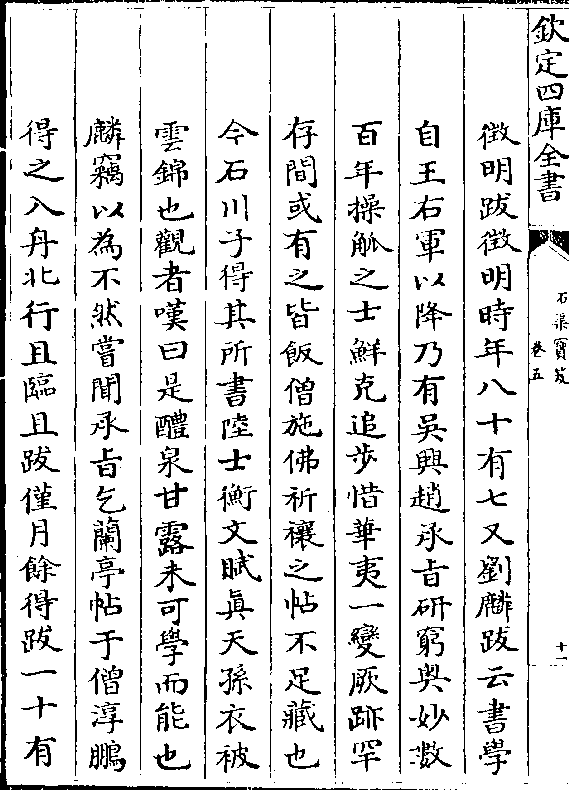 欽定四庫全書
石渠寶笈
卷五
十一
徴明跋徴明時年八十有七又劉麟跋云書學
自王右軍以降乃有吳興趙承旨研窮奥妙數
百年操觚之士鮮克追步惜華夷一變厥跡罕
存間或有之皆飯僧施佛祈禳之帖不足藏也
今石川子得其所書陸士衡文賦真天孫衣被
雲錦也觀者嘆曰是醴泉甘露未可學而能也
麟竊以為不然嘗聞承旨乞蘭亭帖于僧淳鵬
得之入舟北行且臨且跋僅月餘得跋一十有